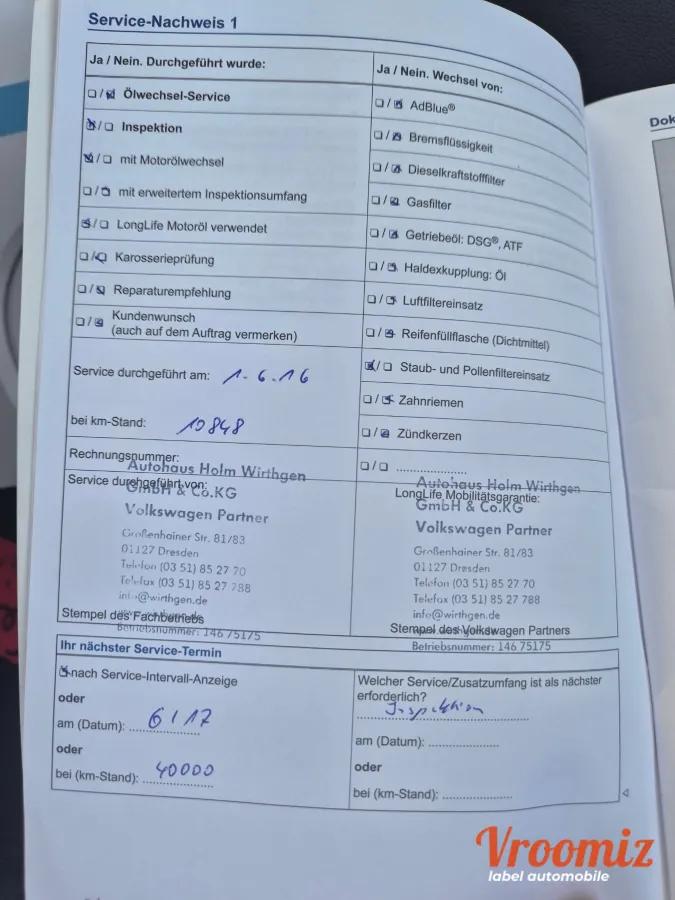 Service-Nachweis 1
Ja / Nein. Durchgeführt wurde:
☐/☒ Ölwechsel-Service
☒/☐ Inspektion
☒/☐ mit Motorölwechsel
☐/☒ mit erweitertem Inspektionsumfang
☒/☐ LongLife Motoröl verwendet
☐/☒ Karosserieprüfung
☐/☒ Reparaturempfehlung
☐/☒ Kundenwunsch
(auch auf dem Auftrag vermerken)
Service durchgeführt am: 1.6.16
bei km-Stand: 19848
Rechnungsnummer:
Service durchgeführt von:
Autohaus Holm Wirthgen
GmbH & Co.KG
Volkswagen Partner
Großenhainer Str. 81/83
01127 Dresden
Telefon (03 51) 85 27 70
Telefax (03 51) 85 27 788
info@wirthgen.de
Stempel des Fachbetriebs
Betriebsnummer: 146 75175
Ja / Nein. Wechsel von:
☐/☒ AdBlue®
☐/☒ Bremsflüssigkeit
☐/☒ Dieselkraftstofffilter
☐/☒ Gasfilter
☐/☒ Getriebeöl: DSG®, ATF
☐/☒ Haldexkupplung: Öl
☐/☒ Luftfiltereinsatz
☐/☒ Reifenfüllflasche (Dichtmittel)
☒/☐ Staub- und Pollenfiltereinsatz
☐/☒ Zahnriemen
☐/☒ Zündkerzen
☐/☐ ......................
LongLife Mobilitätsgarantie:
Autohaus Holm Wirthgen
GmbH & Co.KG
Volkswagen Partner
Großenhainer Str. 81/83
01127 Dresden
Telefon (03 51) 85 27 70
Telefax (03 51) 85 27 788
info@wirthgen.de
Stempel des Volkswagen Partners
Betriebsnummer: 146 75175
Ihr nächster Service-Termin
☒ nach Service-Intervall-Anzeige
oder
am (Datum): 6/17
oder
bei (km-Stand): 40000
Welcher Service/Zusatzumfang ist als nächster
erforderlich?
Inspektion
am (Datum): ......................
oder
bei (km-Stand): ......................
Dok
Vroomiz
label automobile